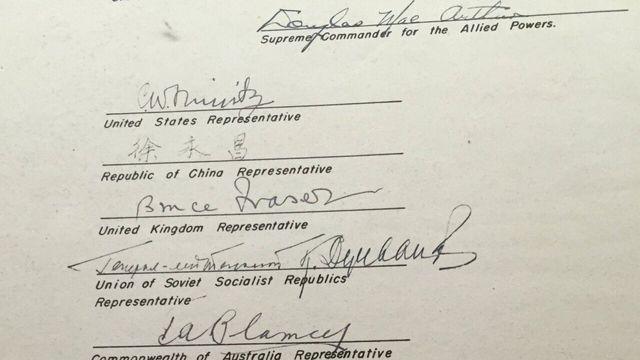 Douglas MacArthur
Supreme Commander for the Allied Powers.
C.W. Nimitz
United States Representative
徐永昌
Republic of China Representative
Bruce Fraser
United Kingdom Representative
Генерал-лейтенант К. Деревянко
Union of Soviet Socialist Republics
Representative
T A Blamey
Commonwealth of Australia Representative